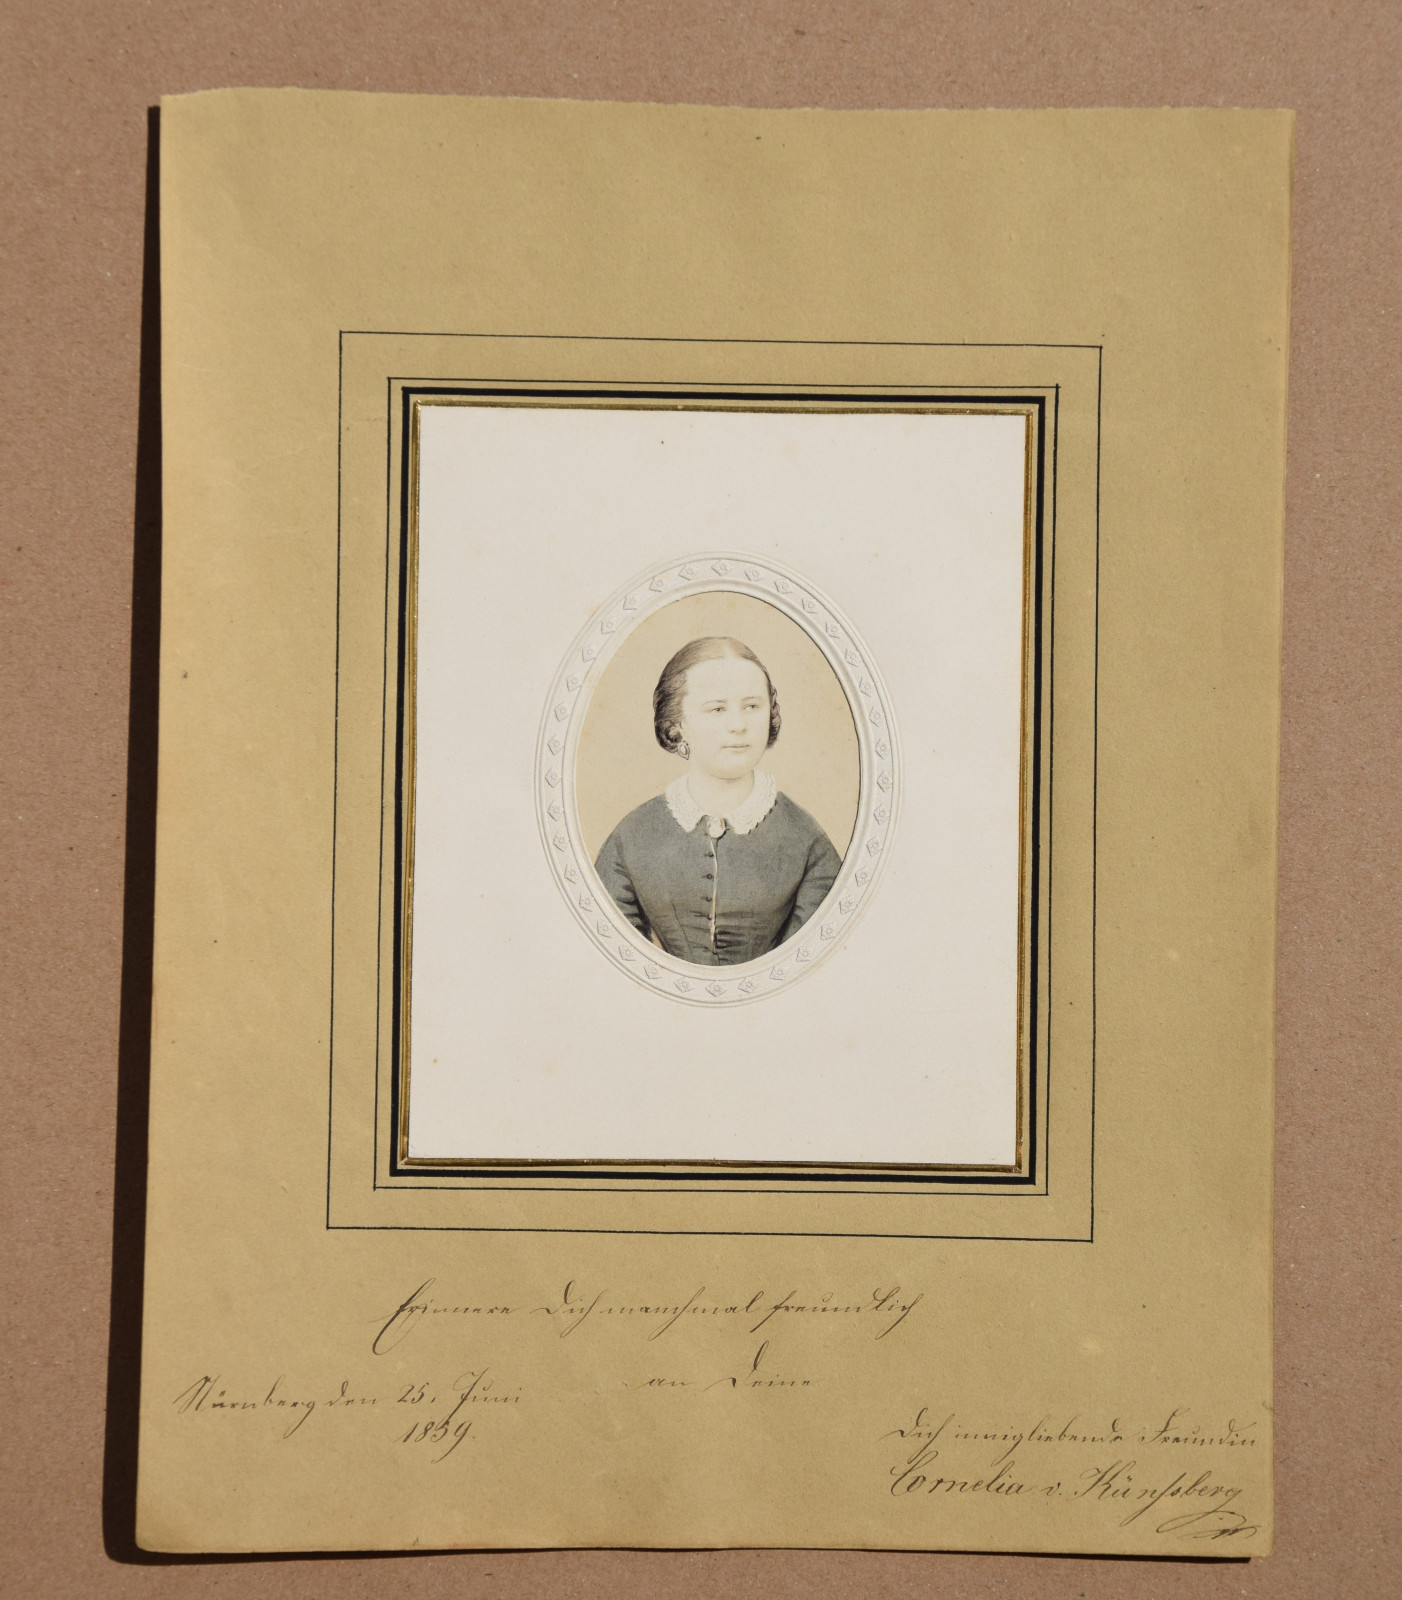 Erinnere Dich manchmal freundlich
an Deine
Nürnberg den 25. Juni
1859.
Dich innigliebende Freundin
Cornelia v. Künsberg